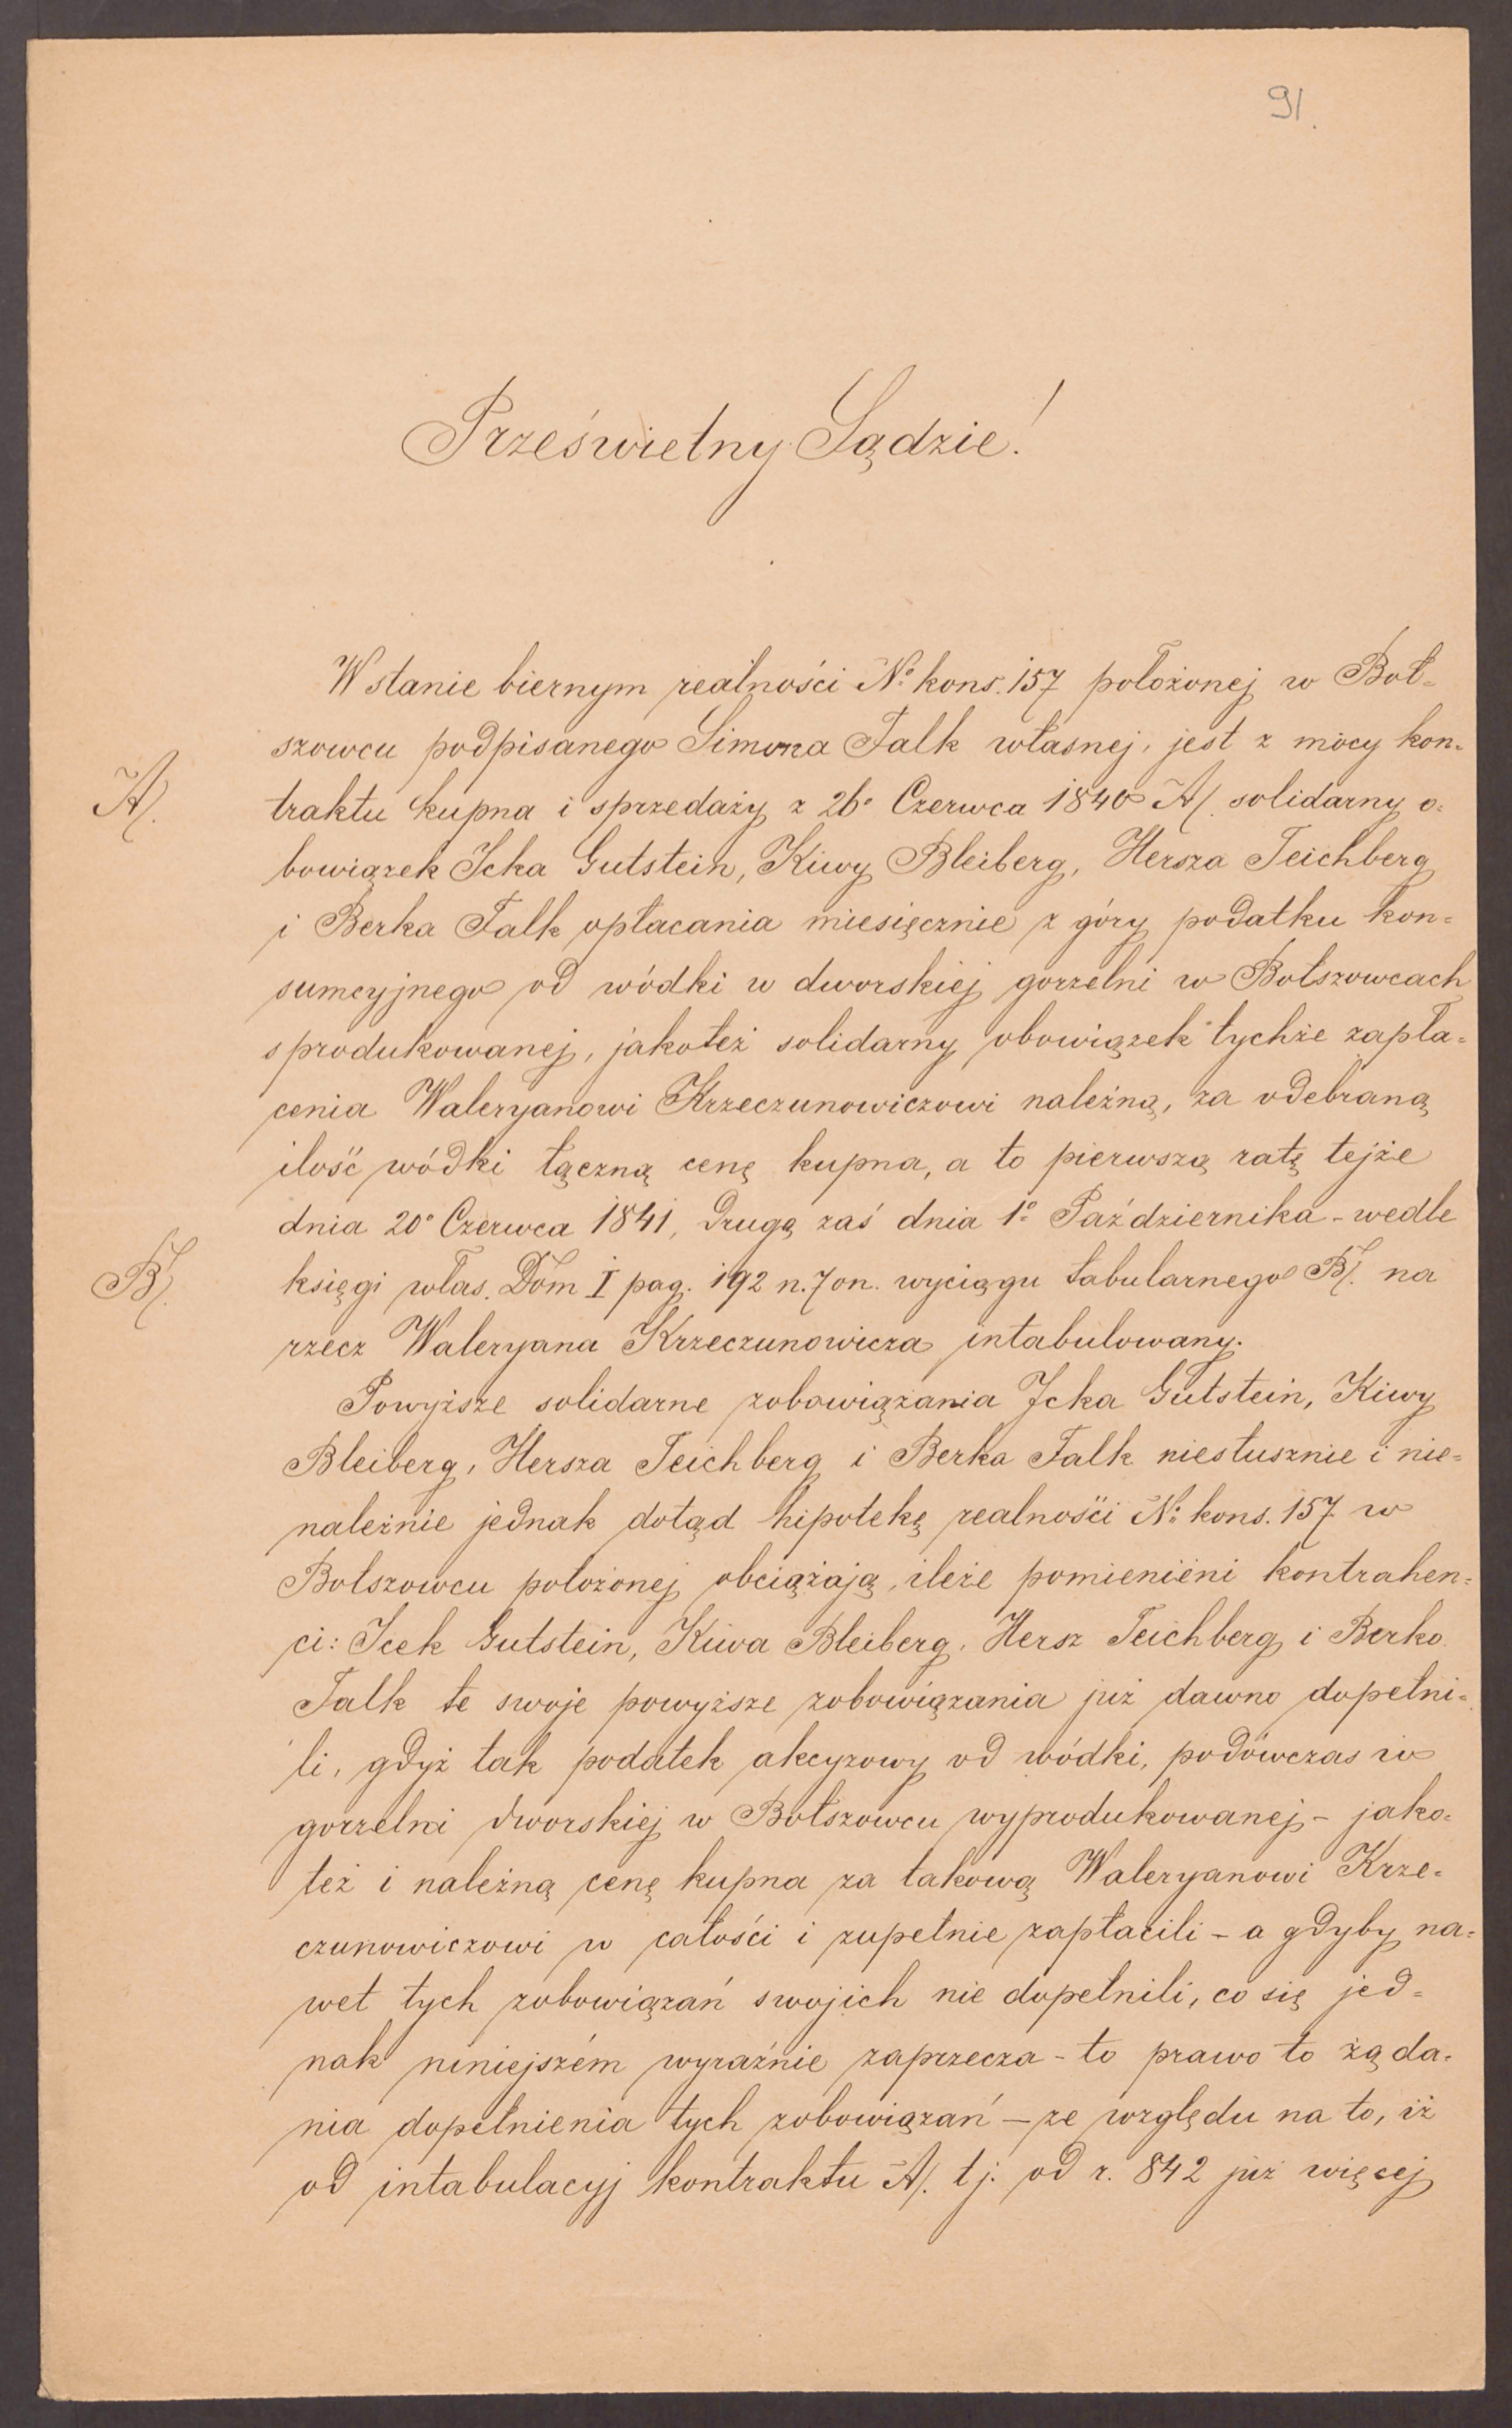 91.
Prześwietny Sądzie!
W stanie biernym realności No kons. 157 położonej w Boł-
szowcu podpisanego Simona Falk własnej, jest z mocy kon-
A/.
traktu kupna i sprzedaży z 26o Czerwca 1840 A/. solidarny o-
bowiązek Icka Gutstein, Kiwy Bleiberg, Hersza Teichberg
i Berka Falk opłacania miesięcznie z góry podatku kon-
sumcyjnego od wódki w dworskiej gorzelni w Bołszowcach
sprodukowanej, jakoteż solidarny obowiązek tychże zapła-
cenia Waleryanowi Krzeczunowiczowi należną, za odebraną
ilość wódki łączną cenę kupna, a to pierwszą ratę tejże
dnia 20o Czerwca 1841, drugą zaś dnia 1o Października - wedle
B/.
księgi włas. Dom I pag. 192 n. 7 on. wyciągu tabularnego B/. na
rzecz Waleryana Krzeczunowicza intabulowany.
Powyższe solidarne zobowiązania Icka Gutstein, Kiwy
Bleiberg, Hersza Teichberg i Berka Falk niesłusznie i nie-
należnie jednak dotąd hipotekę realności No kons. 157 w
Bolszowcu położonej obciążają, ileże pomienieni kontrahen-
ci: Icek Gutstein, Kiwa Bleiberg, Hersz Teichberg i Berko
Falk te swoje powyższe zobowiązania już dawno dopełni-
li, gdyż tak podatek akcyzowy od wódki, podówczas w
gorzelni dworskiej w Bołszowcu wyprodukowanej - jako-
też i należną cenę kupna za takową Waleryanowi Krze-
czunowiczowi w całości i zupełnie zapłacili - a gdyby na-
wet tych zobowiązań swojich nie dopełnili, co się jed-
nak niniejszém wyraźnie zaprzecza - to prawo to żąda-
nia dopełnienia tych zobowiązań - ze względu na to, iż
od intabulacyj kontraktu A/. tj. od r. 842 już więcej